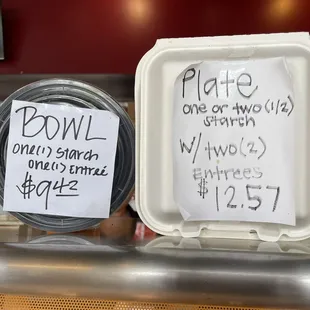 BOWL
one(1) Starch
one(1) Entreé
$9.42
Plate
one or two (1/2)
starch
W/ two(2)
Entrees
$12.57